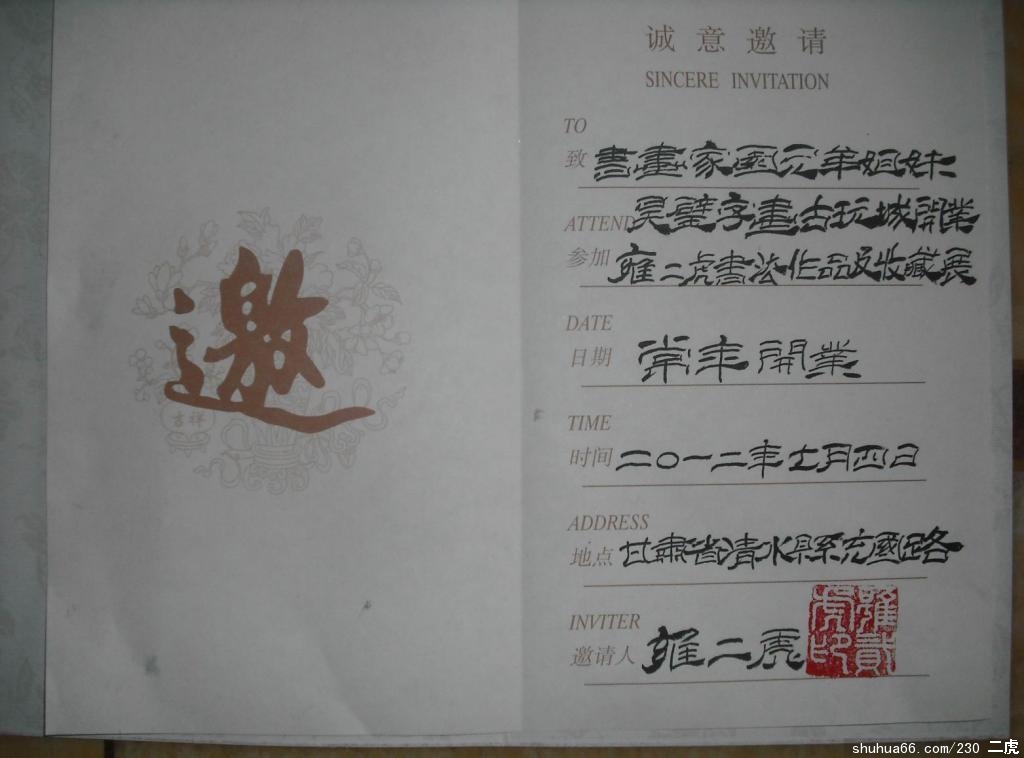 邀
吉祥
诚意邀请
SINCERE INVITATION
TO
致 書畫家函元羊姐妹
ATTEND 昊璧字畫古玩城開業
参加 雍二虎書法作品及收藏展
DATE
日期 常年開業
TIME
时间 二〇一二年七月四日
ADDRESS
地点 甘肅省清水縣充國路
INVITER
邀请人 雍二虎
雍貳虎印
shuhua66.com/230 二虎